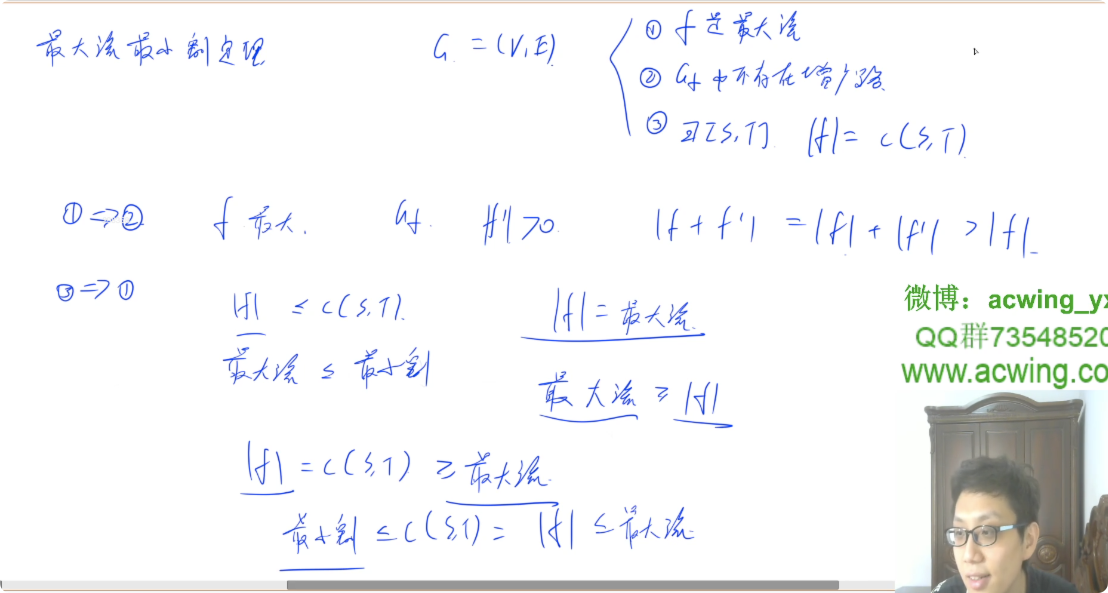 最大流最小割定理
G = (V, E)
① f 是最大流
② Gf 中不存在增广路
③ ∃[S,T] |f| = c(S,T)
①=>② f 最大. Gf. |f'|>0 |f + f'| = |f| + |f'| > |f|
③=>①
|f| ≤ c(S,T).
最大流 ≤ 最小割
|f| = 最大流
最大流 ≥ |f|
|f| = c(S,T) ≥ 最大流
最小割 ≤ c(S,T) = |f| ≤ 最大流
微博：acwing_yx
QQ群73548520
www.acwing.co